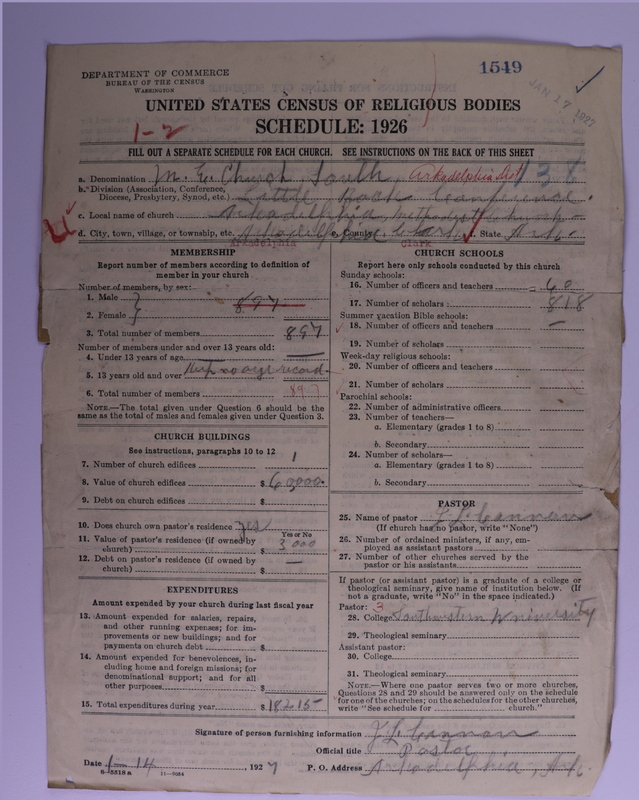 1549
DEPARTMENT OF COMMERCE
BUREAU OF THE CENSUS
WASHINGTON
JAN 17 1927
UNITED STATES CENSUS OF RELIGIOUS BODIES
SCHEDULE: 1926
1-2
FILL OUT A SEPARATE SCHEDULE FOR EACH CHURCH. SEE INSTRUCTIONS ON THE BACK OF THIS SHEET
a. Denomination M. E. Church South Arkadelphia Dist 138
b. Division (Association, Conference, Diocese, Presbytery, Synod, etc.) Little Rock Conference
c. Local name of church Arkadelphia Methodist Church
d. City, town, village, or township, etc. Arkadelphia County Clark State Ark.
Arkadelphia Clark
MEMBERSHIP
Report number of members according to definition of
member in your church
Number of members, by sex:
1. Male
897
2. Female
3. Total number of members 897
Number of members under and over 13 years old:
4. Under 13 years of age
5. 13 years old and over no age record
6. Total number of members 897
NOTE.—The total given under Question 6 should be the
same as the total of males and females given under Question 3.
CHURCH BUILDINGS
See instructions, paragraphs 10 to 12
7. Number of church edifices 1
8. Value of church edifices $ 60,000
9. Debt on church edifices $
10. Does church own pastor's residence yes
Yes or No
11. Value of pastor's residence (if owned by
church) $ 3000
12. Debt on pastor's residence (if owned by
church) $ —
EXPENDITURES
Amount expended by your church during last fiscal year
13. Amount expended for salaries, repairs,
and other running expenses; for im-
provements or new buildings; and for
payments on church debt $
14. Amount expended for benevolences, in-
cluding home and foreign missions; for
denominational support; and for all
other purposes $
15. Total expenditures during year $ 18215
CHURCH SCHOOLS
Report here only schools conducted by this church
Sunday schools:
16. Number of officers and teachers 60
17. Number of scholars 818
Summer vacation Bible schools:
18. Number of officers and teachers —
19. Number of scholars
Week-day religious schools:
20. Number of officers and teachers
21. Number of scholars
Parochial schools:
22. Number of administrative officers
23. Number of teachers—
a. Elementary (grades 1 to 8)
b. Secondary
24. Number of scholars—
a. Elementary (grades 1 to 8)
b. Secondary
PASTOR
25. Name of pastor J. L. Cannon
(If church has no pastor, write "None")
26. Number of ordained ministers, if any, em-
ployed as assistant pastors
27. Number of other churches served by the
pastor or his assistants
If pastor (or assistant pastor) is a graduate of a college or
theological seminary, give name of institution below. (If
not a graduate, write "No" in the space indicated.)
Pastor: 3
28. College Southwestern University
29. Theological seminary
Assistant pastor:
30. College
31. Theological seminary
NOTE.—Where one pastor serves two or more churches,
Questions 28 and 29 should be answered only on the schedule
for one of the churches; on the schedules for the other churches,
write "See schedule for church."
Signature of person furnishing information J. L. Cannon
Official title Pastor
Date 1-14, 1927 P. O. Address Arkadelphia, Ark.
8-5518a 11-9054